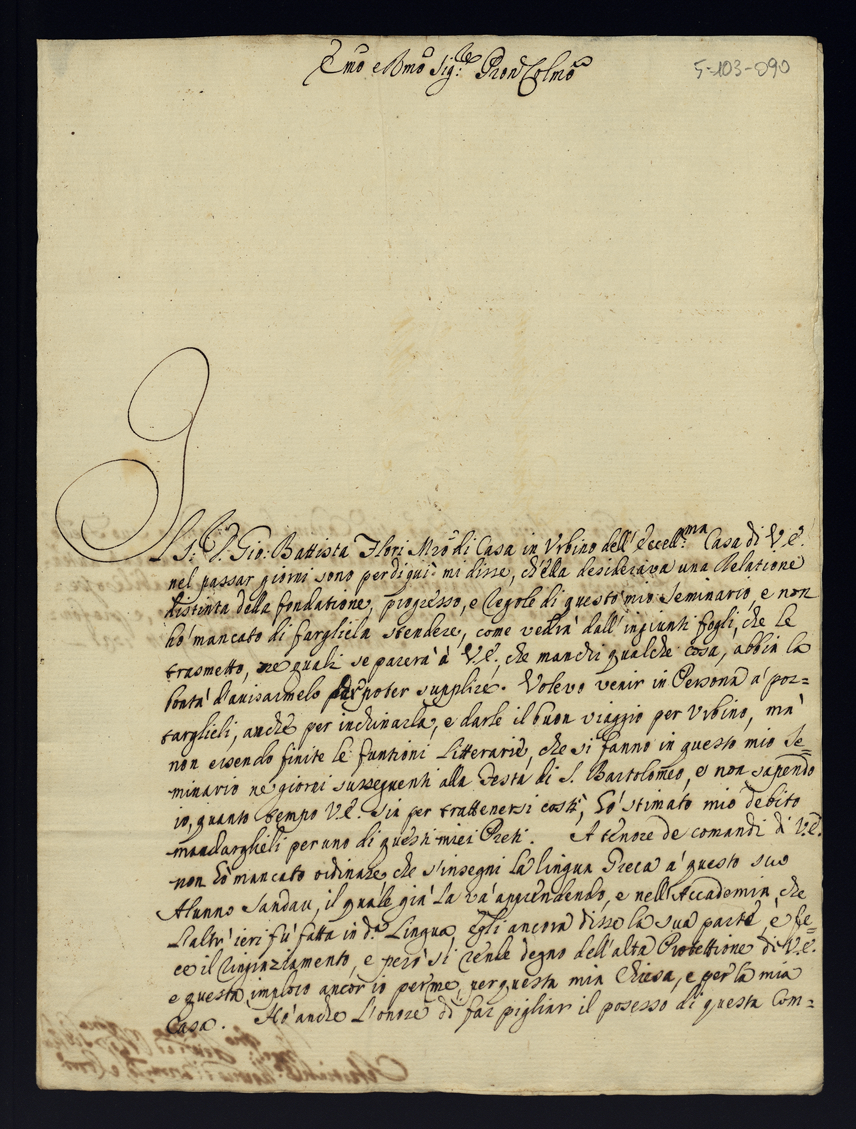 Emo e Rmo Sig.re Pron Colmo
5-103-090
Il S. D. Gio: Battista Flori Mro di Casa in Urbino dell' Eccell.ma Casa di V.E.
nel passar giorni sono per di quì mi disse, ch'ella desiderava una Relatione
distinta della fondatione, progresso, e Regole di questo mio Seminario, e non
hò mancato di fargliela stendere, come vedrà dall'ingiunti fogli, che le
trasmetto, ne quali se parerà à V.E. che manchi qualche cosa, abbia la
bontà d'avisarmelo per poter supplire. Volevo venir in Persona à por=
targlieli, anche per inchinarla, e darle il buon viaggio per Urbino, mà
non essendo finite le funtioni litterarie, che si fanno in questo mio Se=
minario ne giorni susseguenti alla Festa di S. Bartolomeo, e non sapendo
io, quanto tempo V.E. sia per trattenersi costì, hò stimato mio debito
mandarglieli per uno di questi miei Preti. A tenore de comandi di V.E.
non hò mancato ordinare che s'insegni la lingua Greca à questo suo
Alunno Sandau, il quale già la và apprendendo, e nell'Accademia, che
l'altr'ieri fù fatta in d.a Lingua, egli ancora disse la sua parte, e fe=
ce il ringraziamento, e però si rende degno dell'alta Protettione di V.E.
e questa imploro ancor io per me, per questa mia Chiesa, e per la mia
Casa. Hò anche l'onore di far pigliar il posesso di questa Com=